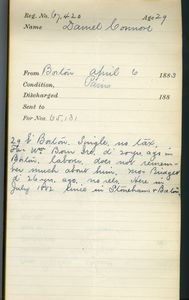 Reg. No. 67,420 Age 29
Name Daniel Connor
From Boston April 6 1883
Condition,
Discharged 188
Sent to
For Nos. 65,131
29 S. Boston. Single, no tax.
Fa. Wm Born Ire. d 20 yrs ago in
Boston, labour, does not remem-
ber much about him, mo Bridget
d 26 yrs. ago, no rels. Here in
July 1882. Since in Stoneham & Boston